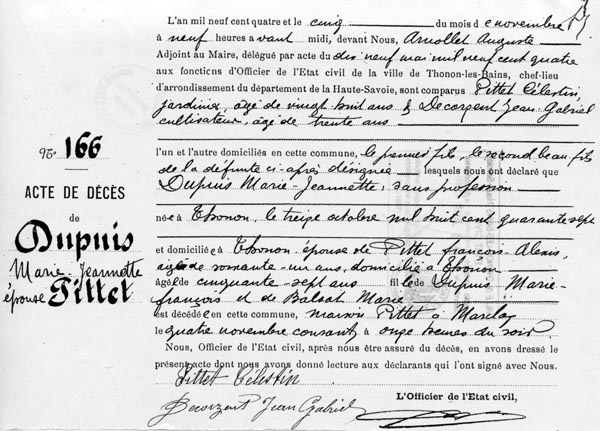 N° 166
ACTE DE DÉCÈS
de
Dupuis
Marie-Jeannette
épouse Pittet
L'an mil neuf cent quatre et le cinq du mois de novembre
à neuf heures avant midi, devant Nous, Arnollet Auguste
Adjoint au Maire, délégué par acte du dix neuf mai mil neuf cent quatre
aux fonctions d'Officier de l'Etat civil de la ville de Thonon-les-Bains, chef-lieu
d'arrondissement du département de la Haute-Savoie, sont comparus Pittet Célestin,
jardinier, âgé de vingt huit ans & Decorzent Jean Gabriel
cultivateur, âgé de trente ans
l'un et l'autre domiciliés en cette commune, le premier fils, le second beau-fils
de la défunte ci-après désignée lesquels nous ont déclaré que
Dupuis Marie-Jeannette, sans profession
née à Thonon, le treize octobre mil huit cent quarante sept
et domiciliée à Thonon, épouse de Pittet françois-Alexis,
âgé de soixante-un ans, domicilié à Thonon
âgée de cinquante sept ans fille de Dupuis Marie-
françois et de Balsat Marie
est décédée en cette commune, maison Pittet à Marclaz
le quatre novembre courant, à onze heures du soir.
Nous, Officier de l'Etat civil, après nous être assuré du décès, en avons dressé le
présent acte dont nous avons donné lecture aux déclarants qui l'ont signé avec Nous.
Pittet Célestin
Decorzent Jean Gabriel
L'Officier de l'Etat civil,